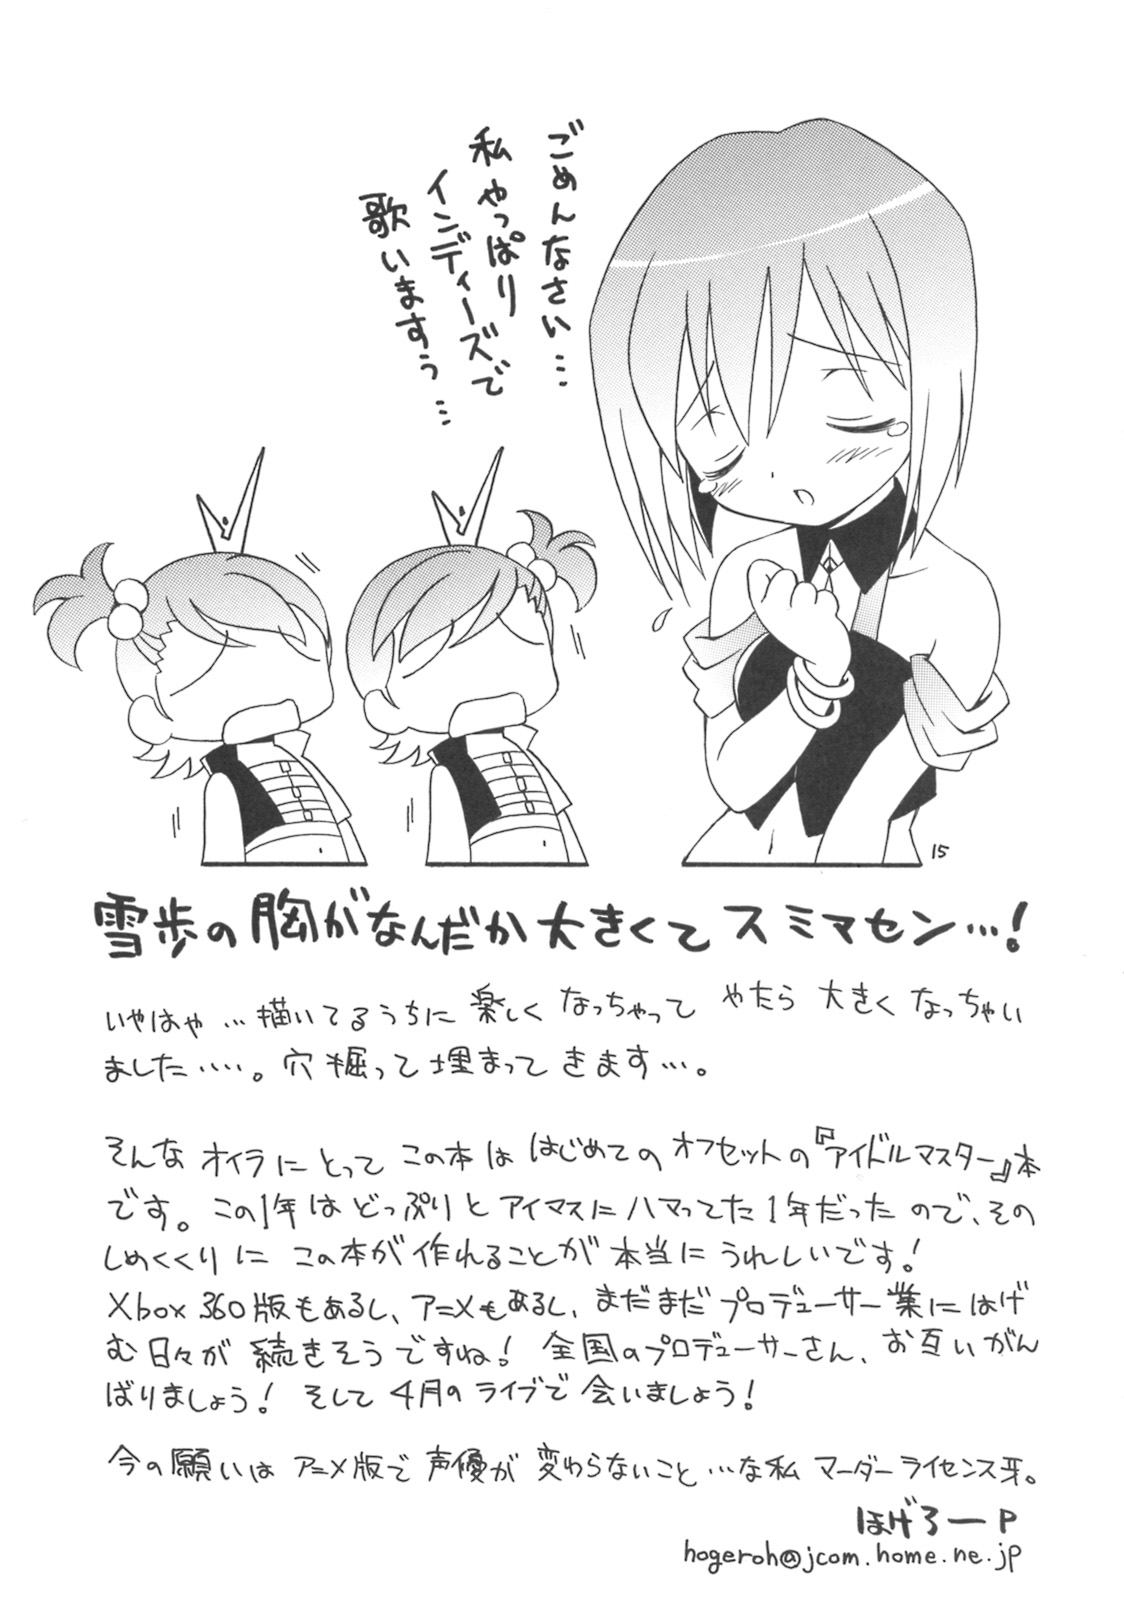 ごめんなさい…
私やっぱり
インディーズで
歌いますぅ…
15
雪歩の胸がなんだか大きくてスミマセン…!
いやはや…描いてるうちに楽しくなっちゃって やたら大きくなっちゃい
ました‥‥。穴掘って埋まってきます…。
そんなオイラにとって この本は はじめてのオフセットの『アイドルマスター』本
です。この1年はどっぷりとアイマスにハマってた1年だったので、その
しめくくりに この本が作れることが本当にうれしいです!
Xbox360版もあるし、アニメもあるし、まだまだプロデューサー業にはげ
む日々が続きそうですね! 全国のプロデューサーさん、お互いがん
ばりましょう! そして4月のライブで会いましょう!
今の願いは アニメ版で声優が変わらないこと…な私 マーダーライセンス牙。
ほげろーP
hogeroh@jcom.home.ne.jp